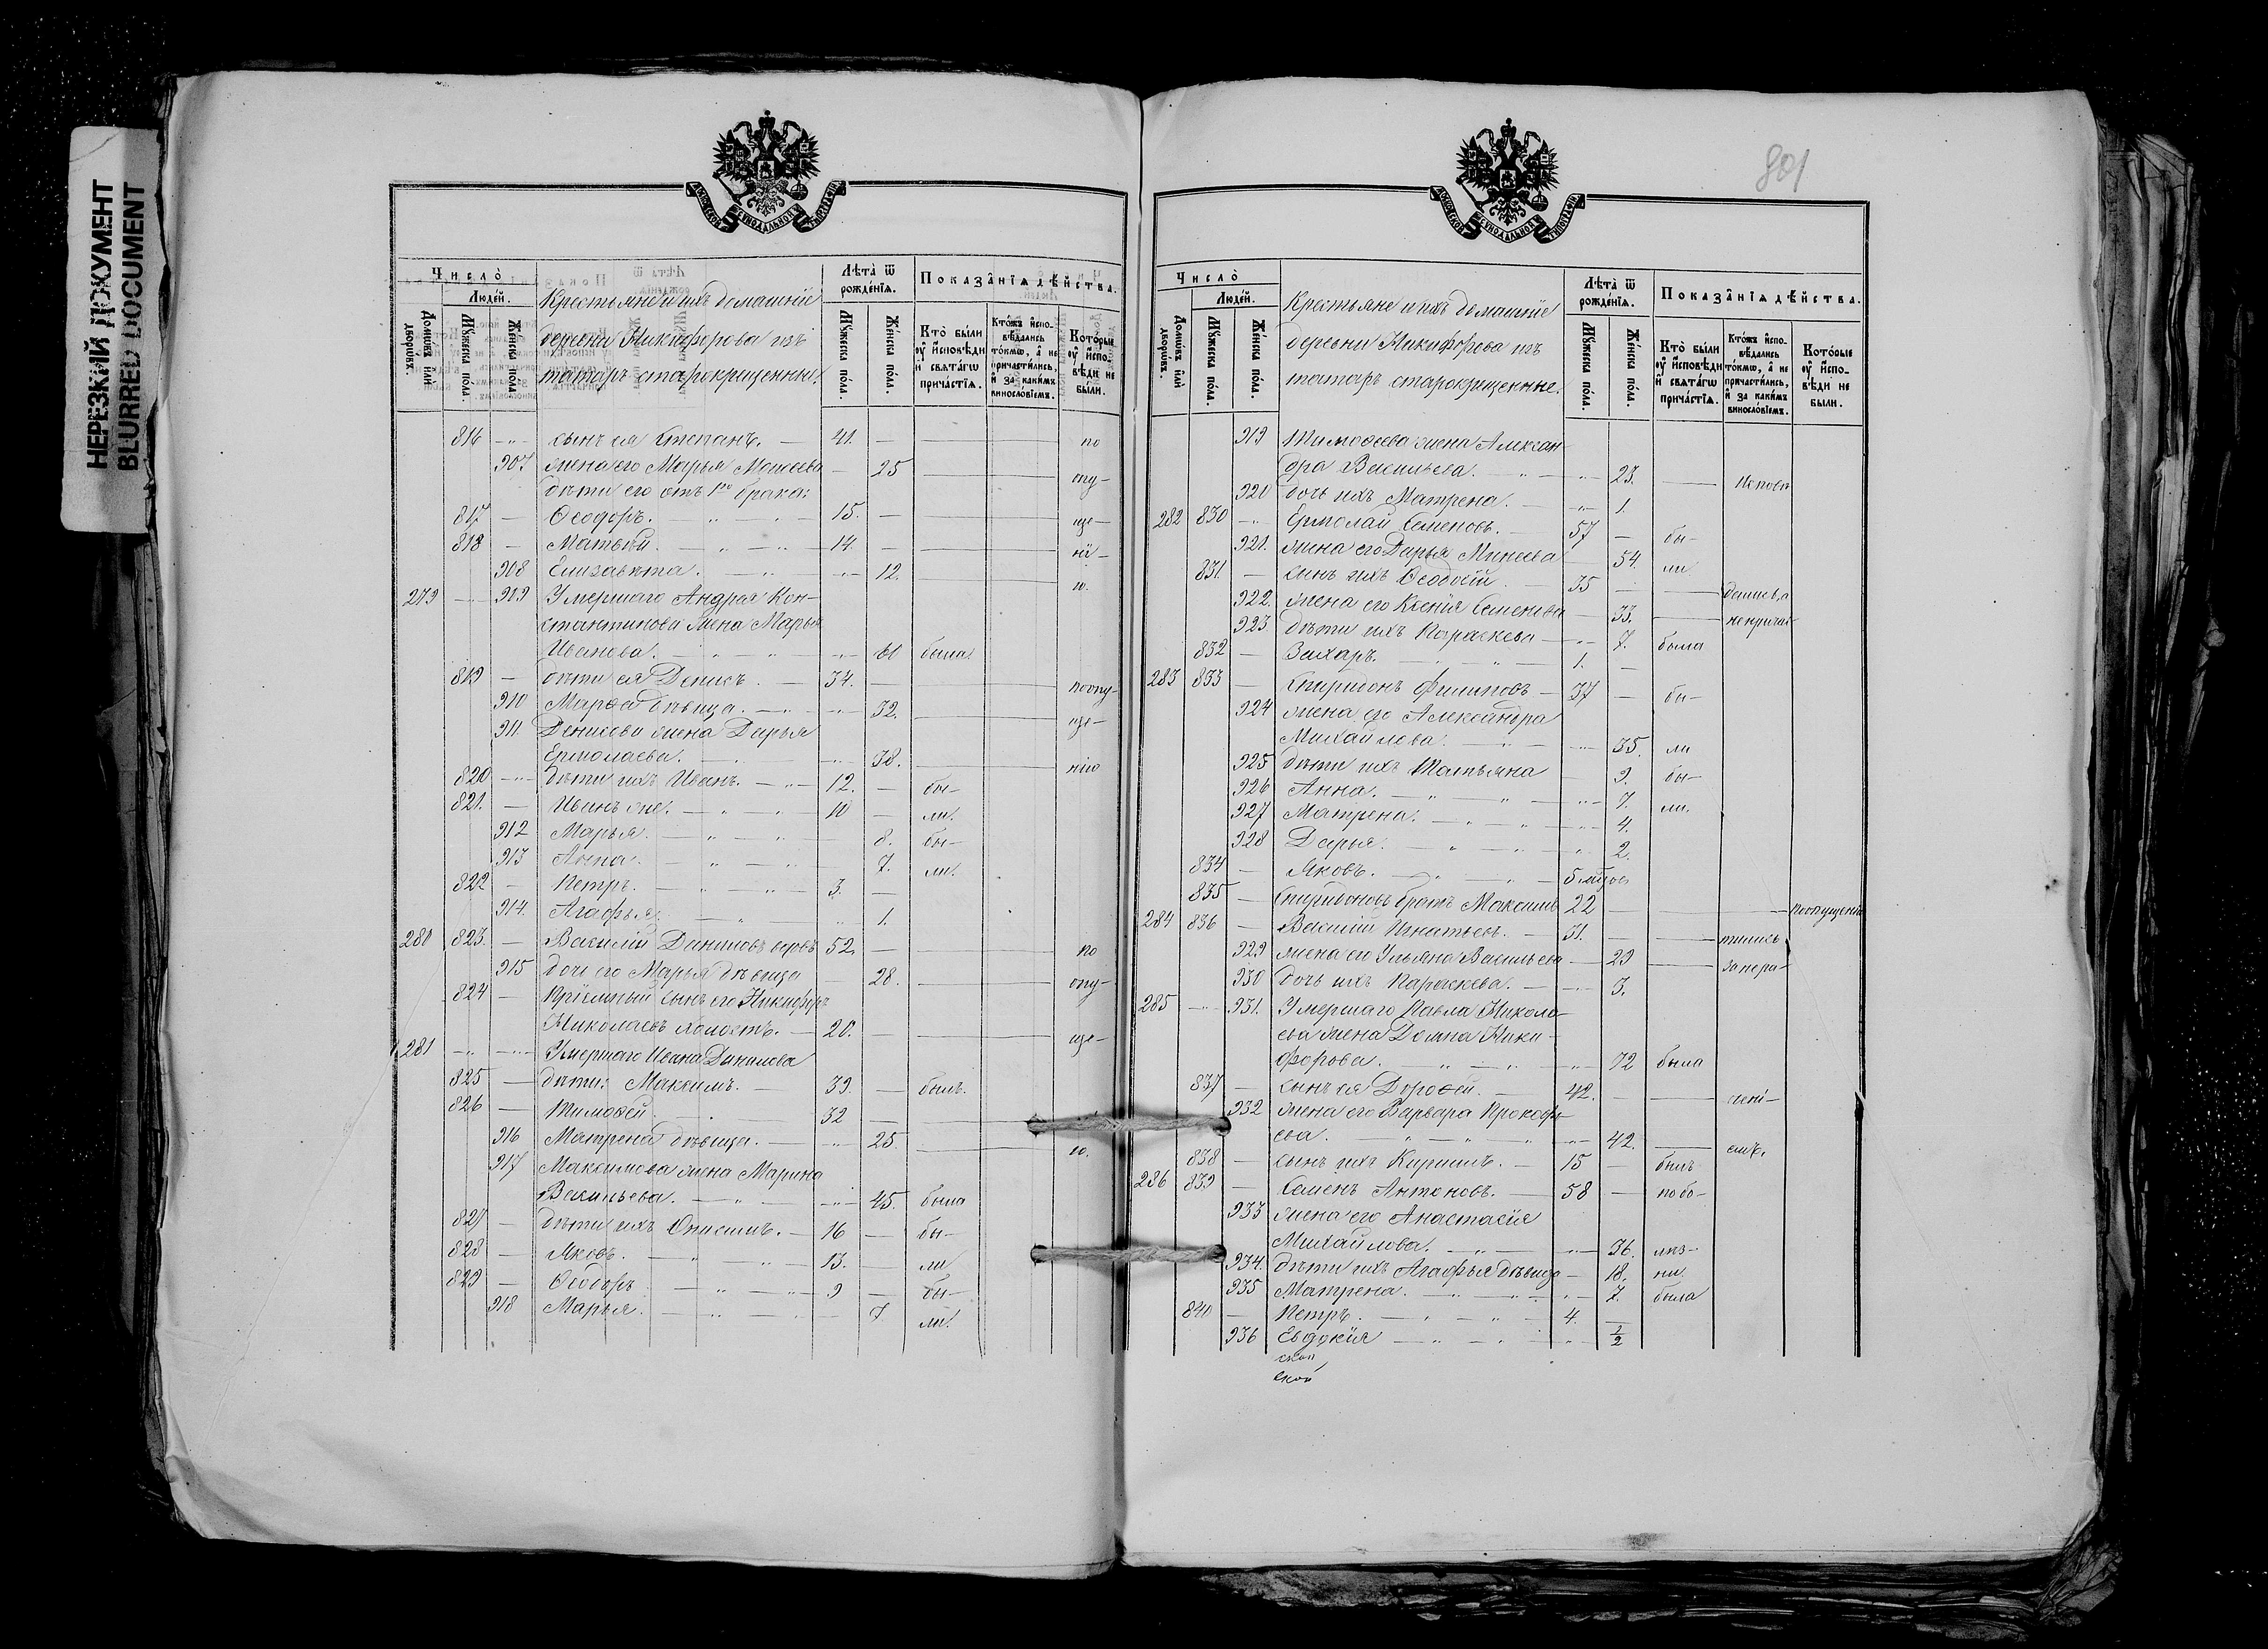 НЕРЕЗКИЙ ДОКУМЕНТ
BLURRED DOCUMENT
МОСКОВСКОЙ СѴНОДАЛЬНОЙ ТѴПОГРАФІИ
Число̀
Людей.
Домѡвъ или дворѡвъ.
Мꙋжеска пола.
Женска пола.
Крестьяне и ихъ домашніе
деревни Никифорова изъ
татаръ старокрещенные.
Лѣта̀ ѿ рожденїѧ.
Мꙋжеска пола.
Женска пола.
Показанїѧ дѣйства.
Кто̀ были оу исповѣди и свѧтагѡ причастїѧ.
Ктожъ исповѣдались токмѡ, а не причастились, и за какимъ винословїемъ.
Которые оу исповѣди не были.
816 -„- сынъ ея Степанъ. — 41. — по
907 жена его Марья Моисеева — 25 опу-
дѣти его отъ 1го брака:
817 — Ѳеодоръ. 15. — ще-
818 — Матвѣй. 14. — ні-
908 Елизавета. 12. ю.
279 — 909 Умершаго Андрея Кон-
стантинова жена Марья
Иванова. 61 была.
819 — дѣти ея Денисъ. — 34. — по опу-
910 Марѳа дѣвица. 32. ще-
911. Денисова жена Дарья
Ермолаева. 38. нію
820 дѣти ихъ Иванъ. 12. — бы-
821. — Иванъ же. 10 — ли.
912 Марья. 8. бы-
913 Анна. 7. ли.
822 — Петръ. 3. —
914. Агафья. 1.
280 823. — Василій Даниловъ вдовъ 52. — по
915 дочь его Марья дѣвица — 28. опу-
824 — Пріемный сынъ его Никифоръ
Николаевъ холостъ. — 20. — ще-
281 Умершаго Ивана Данилова
825 — дѣти: Максимъ. — 39. — былъ.
826 — Тимоѳей. 32 —
916 Матрена дѣвица. 25. ю.
917 Максимова жена Марина
Васильева. 45. была
827 — дѣти ихъ Онисимъ. — 16 — бы-
828 — Яковъ. 13. — ли
829 — Ѳеодоръ 9 — бы-
918 Марья. 7. ли.
801
МОСКОВСКОЙ СѴНОДАЛЬНОЙ ТѴПОГРАФІИ
Число̀
Людей.
Домѡвъ или дворѡвъ.
Мꙋжеска пола.
Женска пола.
Крестьяне и ихъ домашніе
деревни Никифорова изъ
татаръ старокрещенные.
Лѣта̀ ѿ рожденїѧ.
Мꙋжеска пола.
Женска пола.
Показанїѧ дѣйства.
Кто̀ были оу исповѣди и свѧтагѡ причастїѧ.
Ктожъ исповѣдались токмѡ, а не причастились, и за какимъ винословїемъ.
Которые оу исповѣди не были.
919 Тимоѳеева жена Алексан-
дра Васильева. 23. Исповѣ
920 дочь ихъ Матрена. 1.
282 830 Ермолай Семеновъ. 57 — бы-
921. жена его Дарья Минеева 54. ли
831. — сынъ ихъ Ѳеодосій 35 — дались, а
922. жена его Ксенія Семенова 33. не причас-
923 дѣти ихъ Параскева — 7. была
832 — Захаръ. 1. —
283 833 — Спиридонъ Филиповъ — 37 — бы-
924 жена его Александра
Михайлова. 35. ли
925 дѣти ихъ Татьяна — 9. бы-
926 Анна. 7. ли.
927 Матрена. 4.
928 Дарья. 2.
834 — Яковъ. 5 мцов
835 — Спиридоновъ братъ Максимъ 22 — по опущенію
284 836 — Василій Игнатьевъ. — 31. — тились
929 жена его Ульяна Васильева — 29 за нера-
930 дочь ихъ Параскева. 3.
285 931. Умершаго Павла Никола-
ева жена Домна Ники-
форова. 72 была
837 — сынъ ея Дороѳей. — 42. — чені-
932 жена его Варвара Прокофь-
ева. 42. емъ.
838 — сынъ ихъ Кириллъ. — 15 — былъ
286 839 — Семенъ Антоновъ. — 58 — по бо-
933 жена его Анастасія
Михайлова. 36. лѣз-
934. дѣти ихъ Агафья дѣвица — 18. ни.
935 Матрена. 7. была
840 — Петръ. 4. —
936 Евдокія 1/2
ской